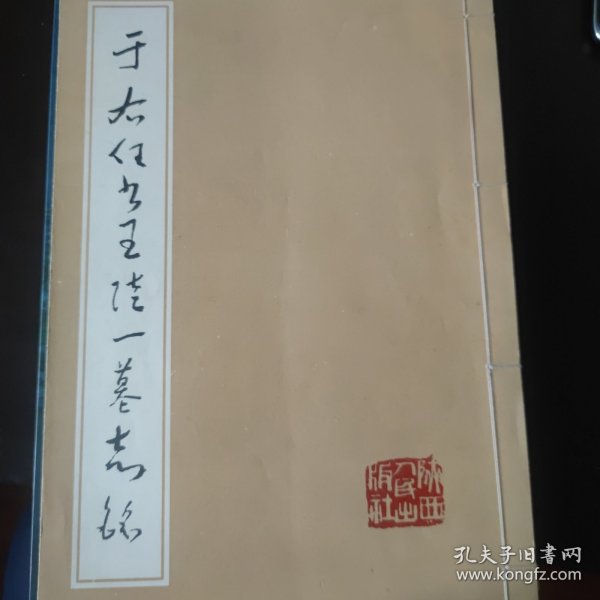 于右任书王陆一墓志铭
陕西
人民出
版社
孔夫子旧书网
www.kongfz.com